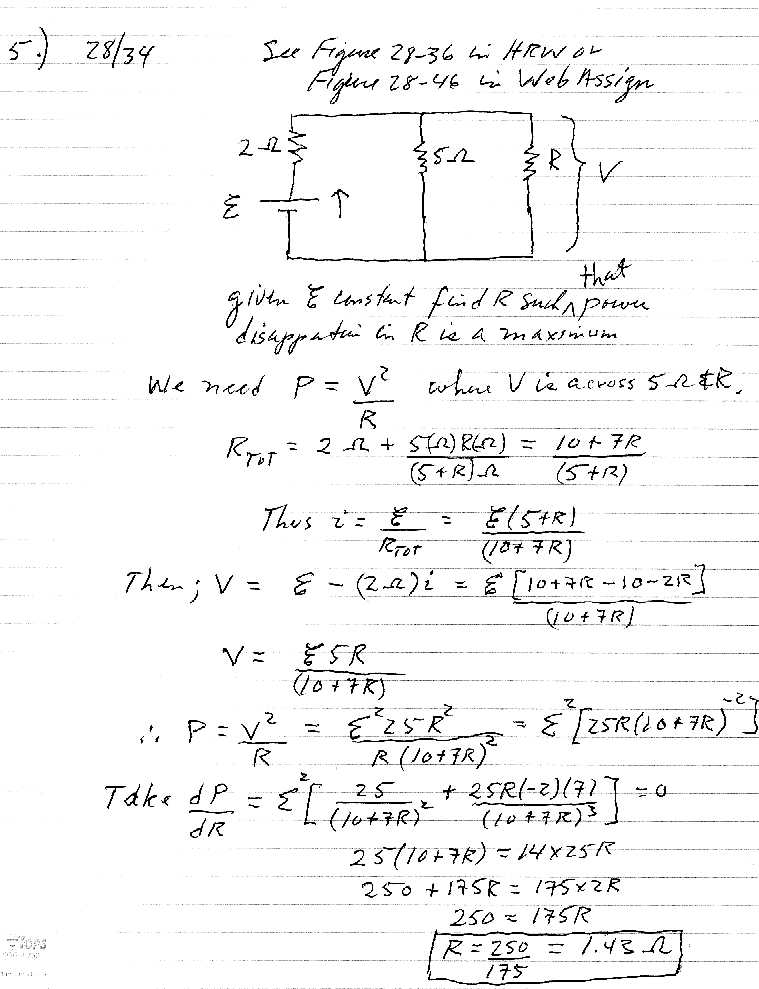 5.) 28/34 See Figure 28-36 in HRW or
Figure 28-46 in WebAssign
2 Ω 5 Ω R V
ℰ ↑
that
given ℰ constant find R such ^ power
disappation in R is a maximum
We need P = V²/R where V is across 5 Ω & R.
R_TOT = 2 Ω + 5(Ω)R(Ω)/(5+R)Ω = 10+7R/(5+R)
Thus i = ℰ/R_TOT = ℰ(5+R)/(10+7R)
Then; V = ℰ - (2Ω)i = ℰ[10+7R-10-2R]/(10+7R)
V = ℰ5R/(10+7R)
∴ P = V²/R = ℰ²25R²/R(10+7R)² = ℰ²[25R(10+7R)⁻²]
Take dP/dR = ℰ²[25/(10+7R)² + 25R(-2)(7)/(10+7R)³] = 0
25(10+7R) = 14×25R
250 + 175R = 175×2R
250 = 175R
R = 250/175 = 1.43 Ω
TOPS